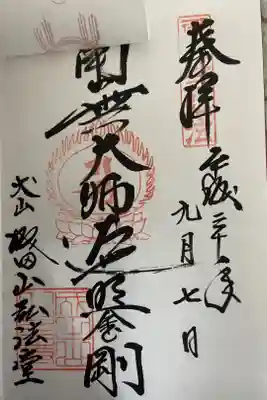 奉拝
平成 十年
九月七日
南無大師遍照金剛
犬山 田山弘法堂